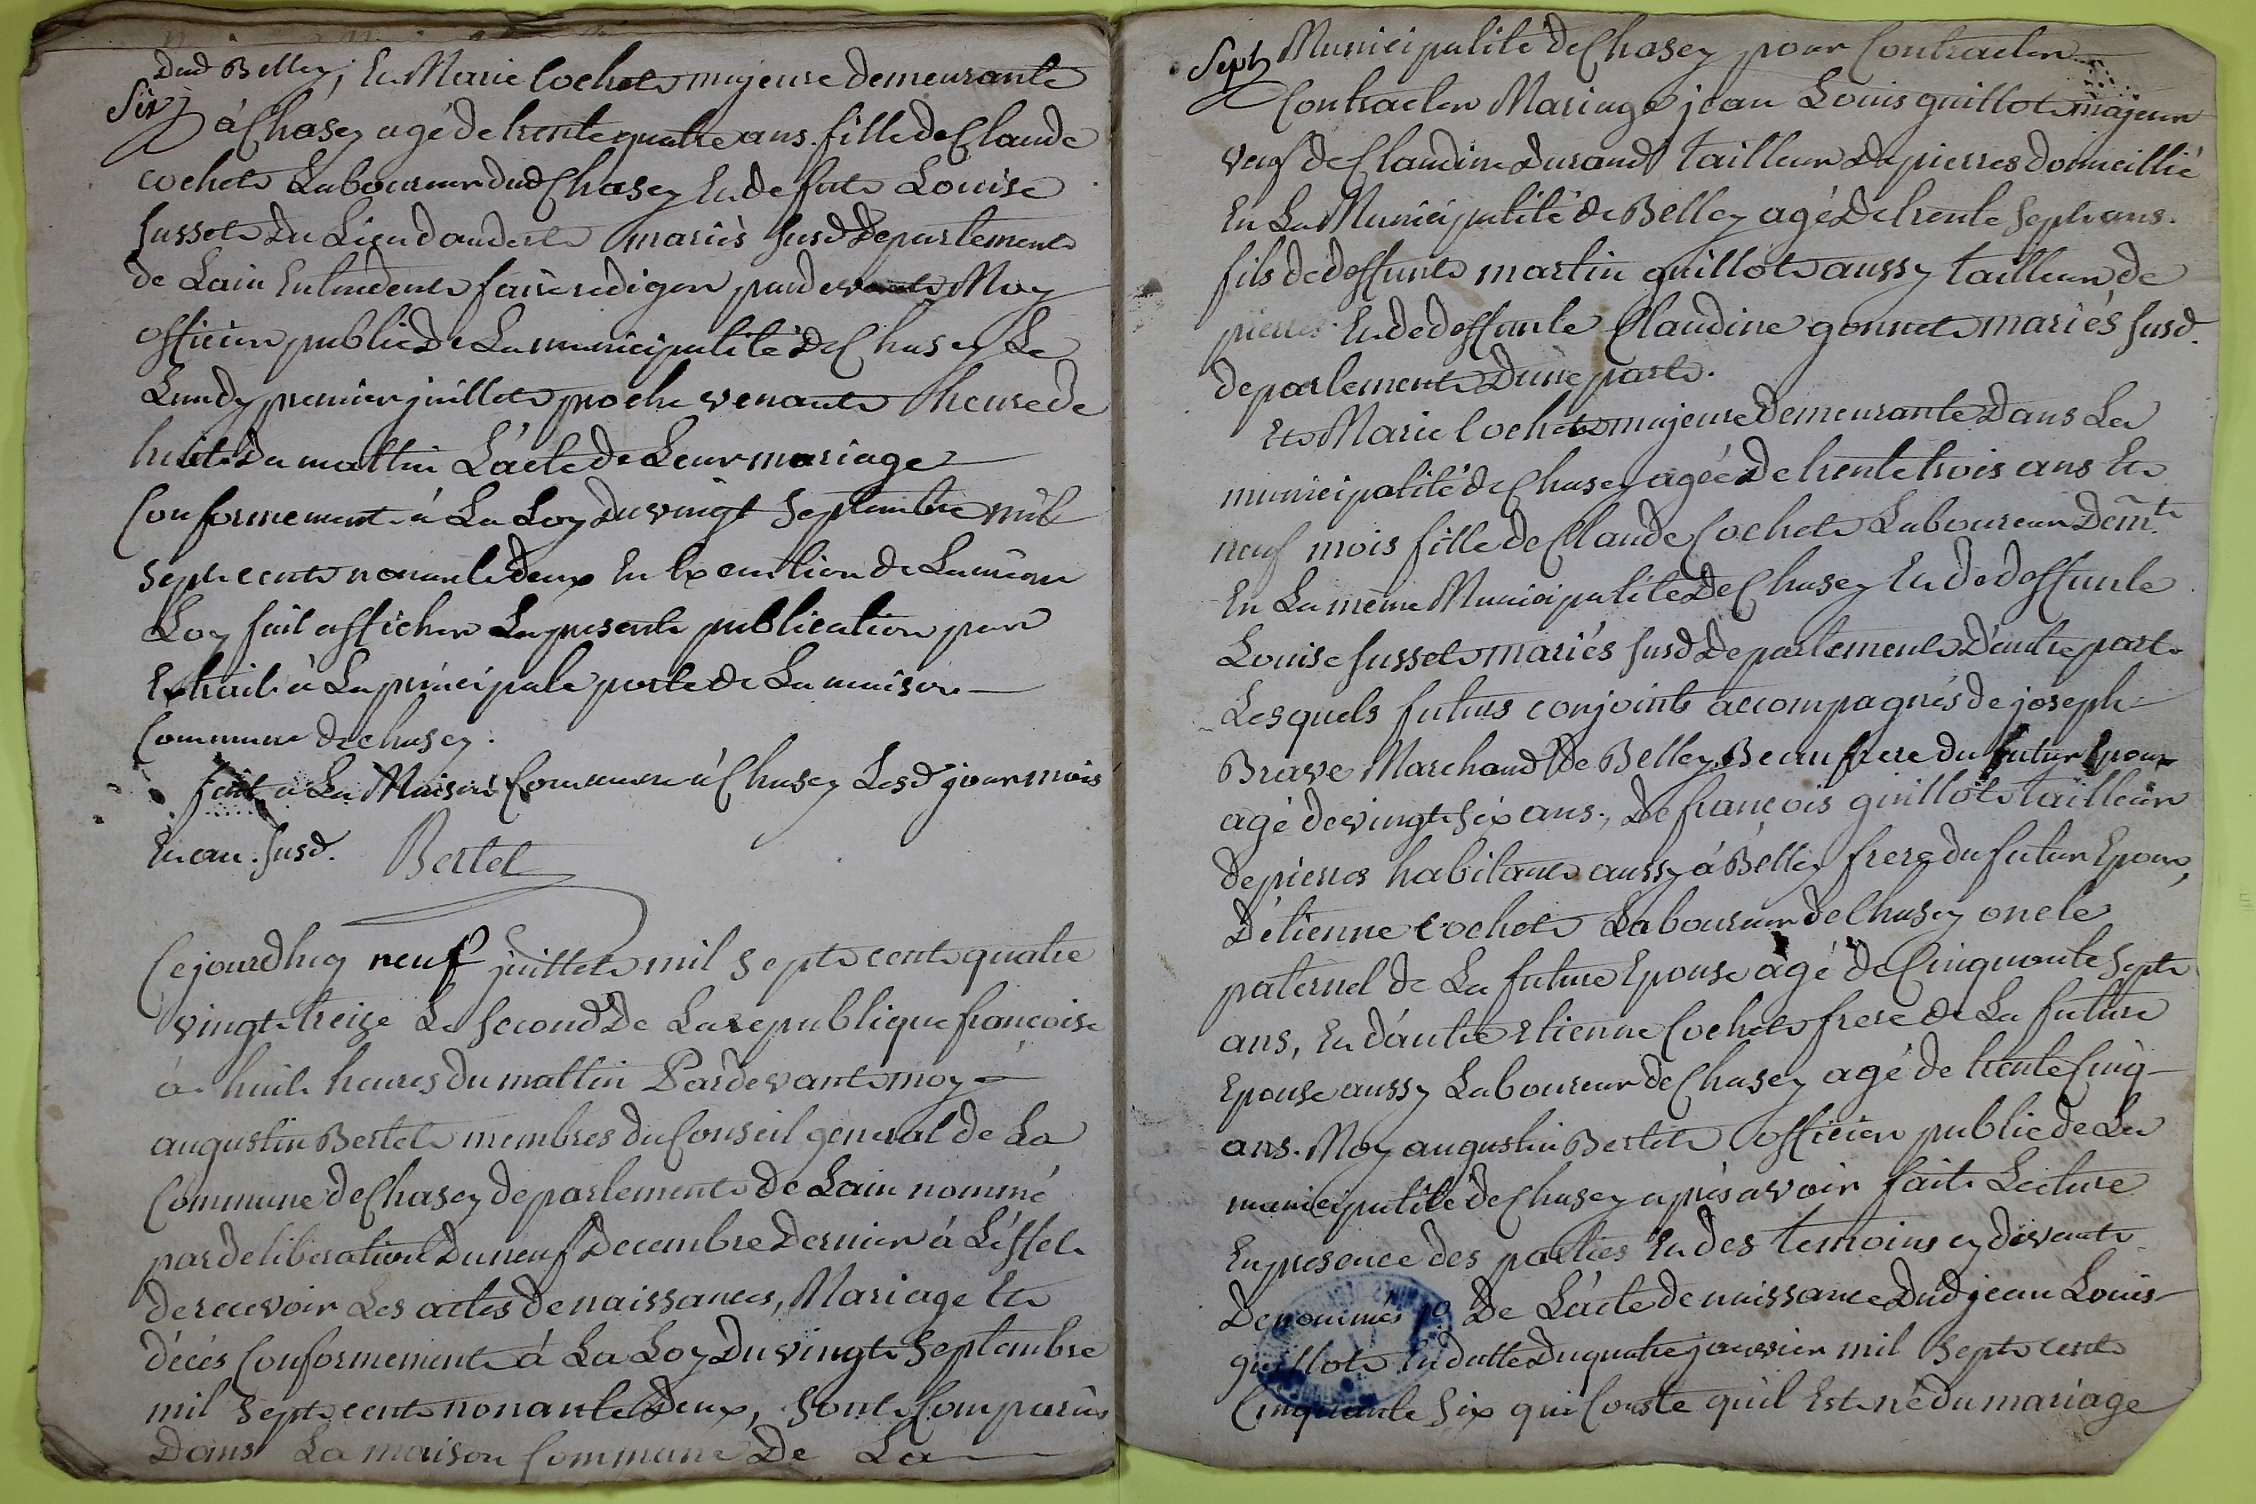 Dud Belley, Et Marie Cochet majeure demeurante
Six
à Chasey agé de trente quatre ans fille de Claude
cochet Laboureur dud Chasey Et de fute Louise
fusset du Lieu dandert mariés susd Departement
de Lain Entendent faire rediger pardevant Moy
officier public de La municipalité de Chasey Le
Lundy premier juillet proche venant heure de
huit du mattin L'acte de Leur mariage
Conformement à La Loy du vingt Septembre mil
Sept cent nonante deux En Execution de La même
Loy fait afficher La presente publication par
Extrait à La principale porte de La maison
Commune de chasey.
fait a La Maison Commune à Chasey Lesd jour mois
Et an susd. Bertet
Cejourdhuy neuf juillet mil Sept cent quatre
vingt treize Le Second De La republique francoise
à huit heures du mattin Pardevant moy
augustin Bertet membres du Conseil general de La
Commune de Chasey departement de Lain nommé
par deliberation du neuf Decembre Dernier à L'éffét
de recevoir Les actes de naissances, Mariage Et
décés Conformement à La Loy du vingt Septembre
mil Sept cent nonante deux, Sont Comparus
Dans La maison Commune De La
Sept
Municipalité de Chasey pour Contracter
Contracter Mariage jean Louis guillot majeur
veuf de Claudine durand tailleur de pierres domicillié
En La Municipalité de Belley agé de trente Sept ans.
fils de deffunt martin guillot aussy tailleur de
pierres Et de deffunte Claudine gonnet mariés susd.
departement d'une part.
Et Marie Cochet majeure demeurante dans La
municipalité de Chasey agée de trente trois ans Et
neuf mois fille de Claude Cochet Laboureur demt
En La même Municipalité de Chasey Et de deffunte
Louise fusset mariés susd Departement D'autre part
Lesquels futurs conjoints accompagnés de joseph
Brave Marchand de Belley Beau frere du futur Epoux
agé de vingt Six ans, de francois guillot tailleur
de pierres habitant aussy à Belley frere du futur Epoux,
D'étienne Cochet Laboureur de Chasey oncle
paternel de La future Epouse agé de Cinquante Sept
ans, Et d'autre etienne Cochet frere de La future
Epouse aussy Laboureur de Chasey agé de trente Cinq
ans. Moy augustin Bertet officier public de La
municipalité de Chasey après avoir fait Lecture
En presence des parties Et des temoins cy devant
Denommés 1o De L'acte de naissance Dud jean Louis
guillot En datte du quatre janvier mil Sept cent
Cinquante Six qui Conste qu'il Est né du mariage